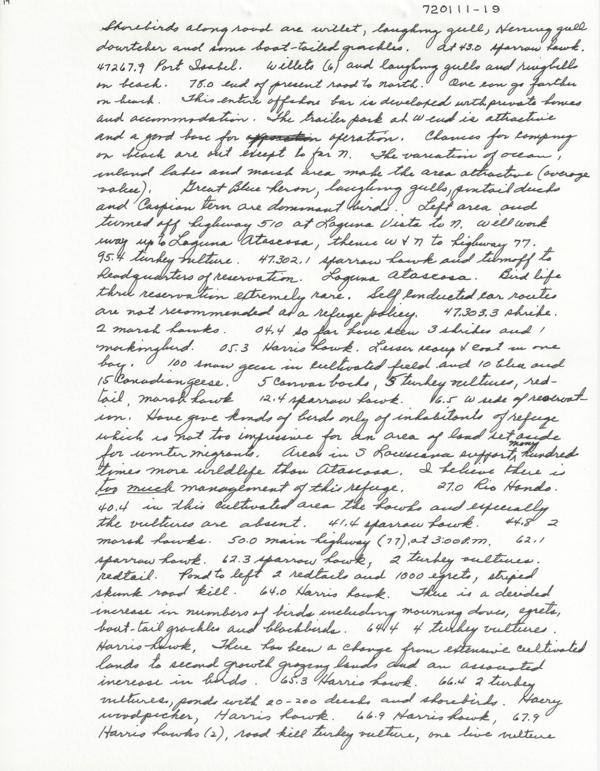 19
720111-19
Shorebirds along road are willet, laughing gull, Herring gull
dowitcher and some boat-tailed grackles. at 43.0 sparrow hawk.
47267.9 Port Isabel. Willets (6) and laughing gulls and ringbills
on beach. 78.0 end of present road to north. One can go farther
on beach. This entire offshore bar is developed with private homes
and accommodation. The trailer park at W end is attractive
and a good base for operation. Chances for camping
on beach are out except to far N. The variation of ocean,
inland lakes and marsh area make the area attractive (average
value). Great Blue heron, laughing gulls, pintail ducks
and Caspian tern are dominant birds. Left area and
turned off highway 510 at Laguna Vista to N. Will work
way up to Laguna Atascosa, thence W & N to highway 77.
95.4 turkey vulture. 47302.1 sparrow hawk and turnoff to
headquarters of reservation. Laguna Atascosa. Bird life
thru reservation extremely rare. Self conducted car routes
are not recommended as a refuge policy. 47303.3 shrike.
2 marsh hawks. 04.4 so far have seen 3 shrikes and 1
mockingbird. 05.3 Harris hawk. Lesser scaup & coot in one
bay. 100 snow geese in cultivated field and 10 blue and
15 Canadian geese. 5 canvas backs, 3 turkey vultures, red-
tail, marsh hawk 12.4 sparrow hawk. 16.5 W side of reservat-
ion. Have give kinds of birds only of inhabitants of refuge
which is not too impressive for an area of land set aside
for winter migrants. Areas in S Louisiana support many hundred
times more wildlife than Atascosa. I believe there is
too much management of this refuge. 27.0 Rio Hondo.
40.4 in this cultivated area the hawks and especially
the vultures are absent. 41.4 sparrow hawk. 44.8 2
marsh hawks. 50.0 main highway (77) at 3:00 P.M. 62.1
sparrow hawk. 62.3 sparrow hawk, 2 turkey vultures.
redtail. Pond to left 2 redtails and 1000 egrets, striped
skunk road kill. 64.0 Harris hawk. There is a decided
increase in numbers of birds including mourning doves, egrets,
boat-tail grackles and blackbirds. 64.4 4 turkey vultures.
Harris hawk, There has been a change from extensive cultivated
lands to second growth grazing lands and an associated
increase in birds. 65.3 Harris hawk. 66.4 2 turkey
vultures, ponds with 20-200 ducks and shorebirds. Hairy
woodpicker, Harris hawk. 66.9 Harris hawk, 67.9
Harris hawks (2), road kill turkey vulture, one live vulture